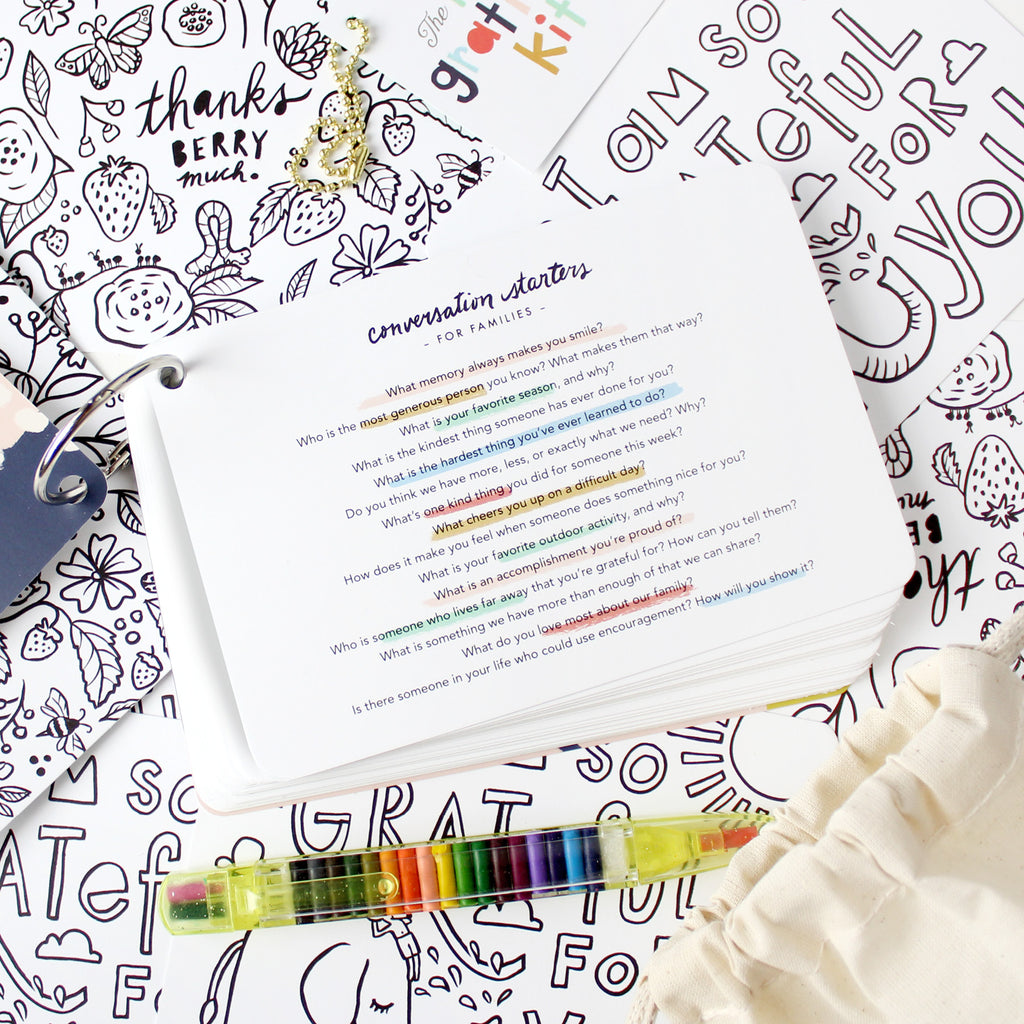 thanks
BERRY
much.
The
grat
kit
I am so
ateful
FOR
you
conversation starters
- FOR FAMILIES -
What memory always makes you smile?
Who is the most generous person you know? What makes them that way?
What is your favorite season, and why?
What is the kindest thing someone has ever done for you?
What is the hardest thing you've ever learned to do?
Do you think we have more, less, or exactly what we need? Why?
What's one kind thing you did for someone this week?
What cheers you up on a difficult day?
How does it make you feel when someone does something nice for you?
What is your favorite outdoor activity, and why?
What is an accomplishment you're proud of?
Who is someone who lives far away that you're grateful for? How can you tell them?
What is something we have more than enough of that we can share?
What do you love most about our family?
Is there someone in your life who could use encouragement? How will you show it?
so
GRAT
ATef
FOR